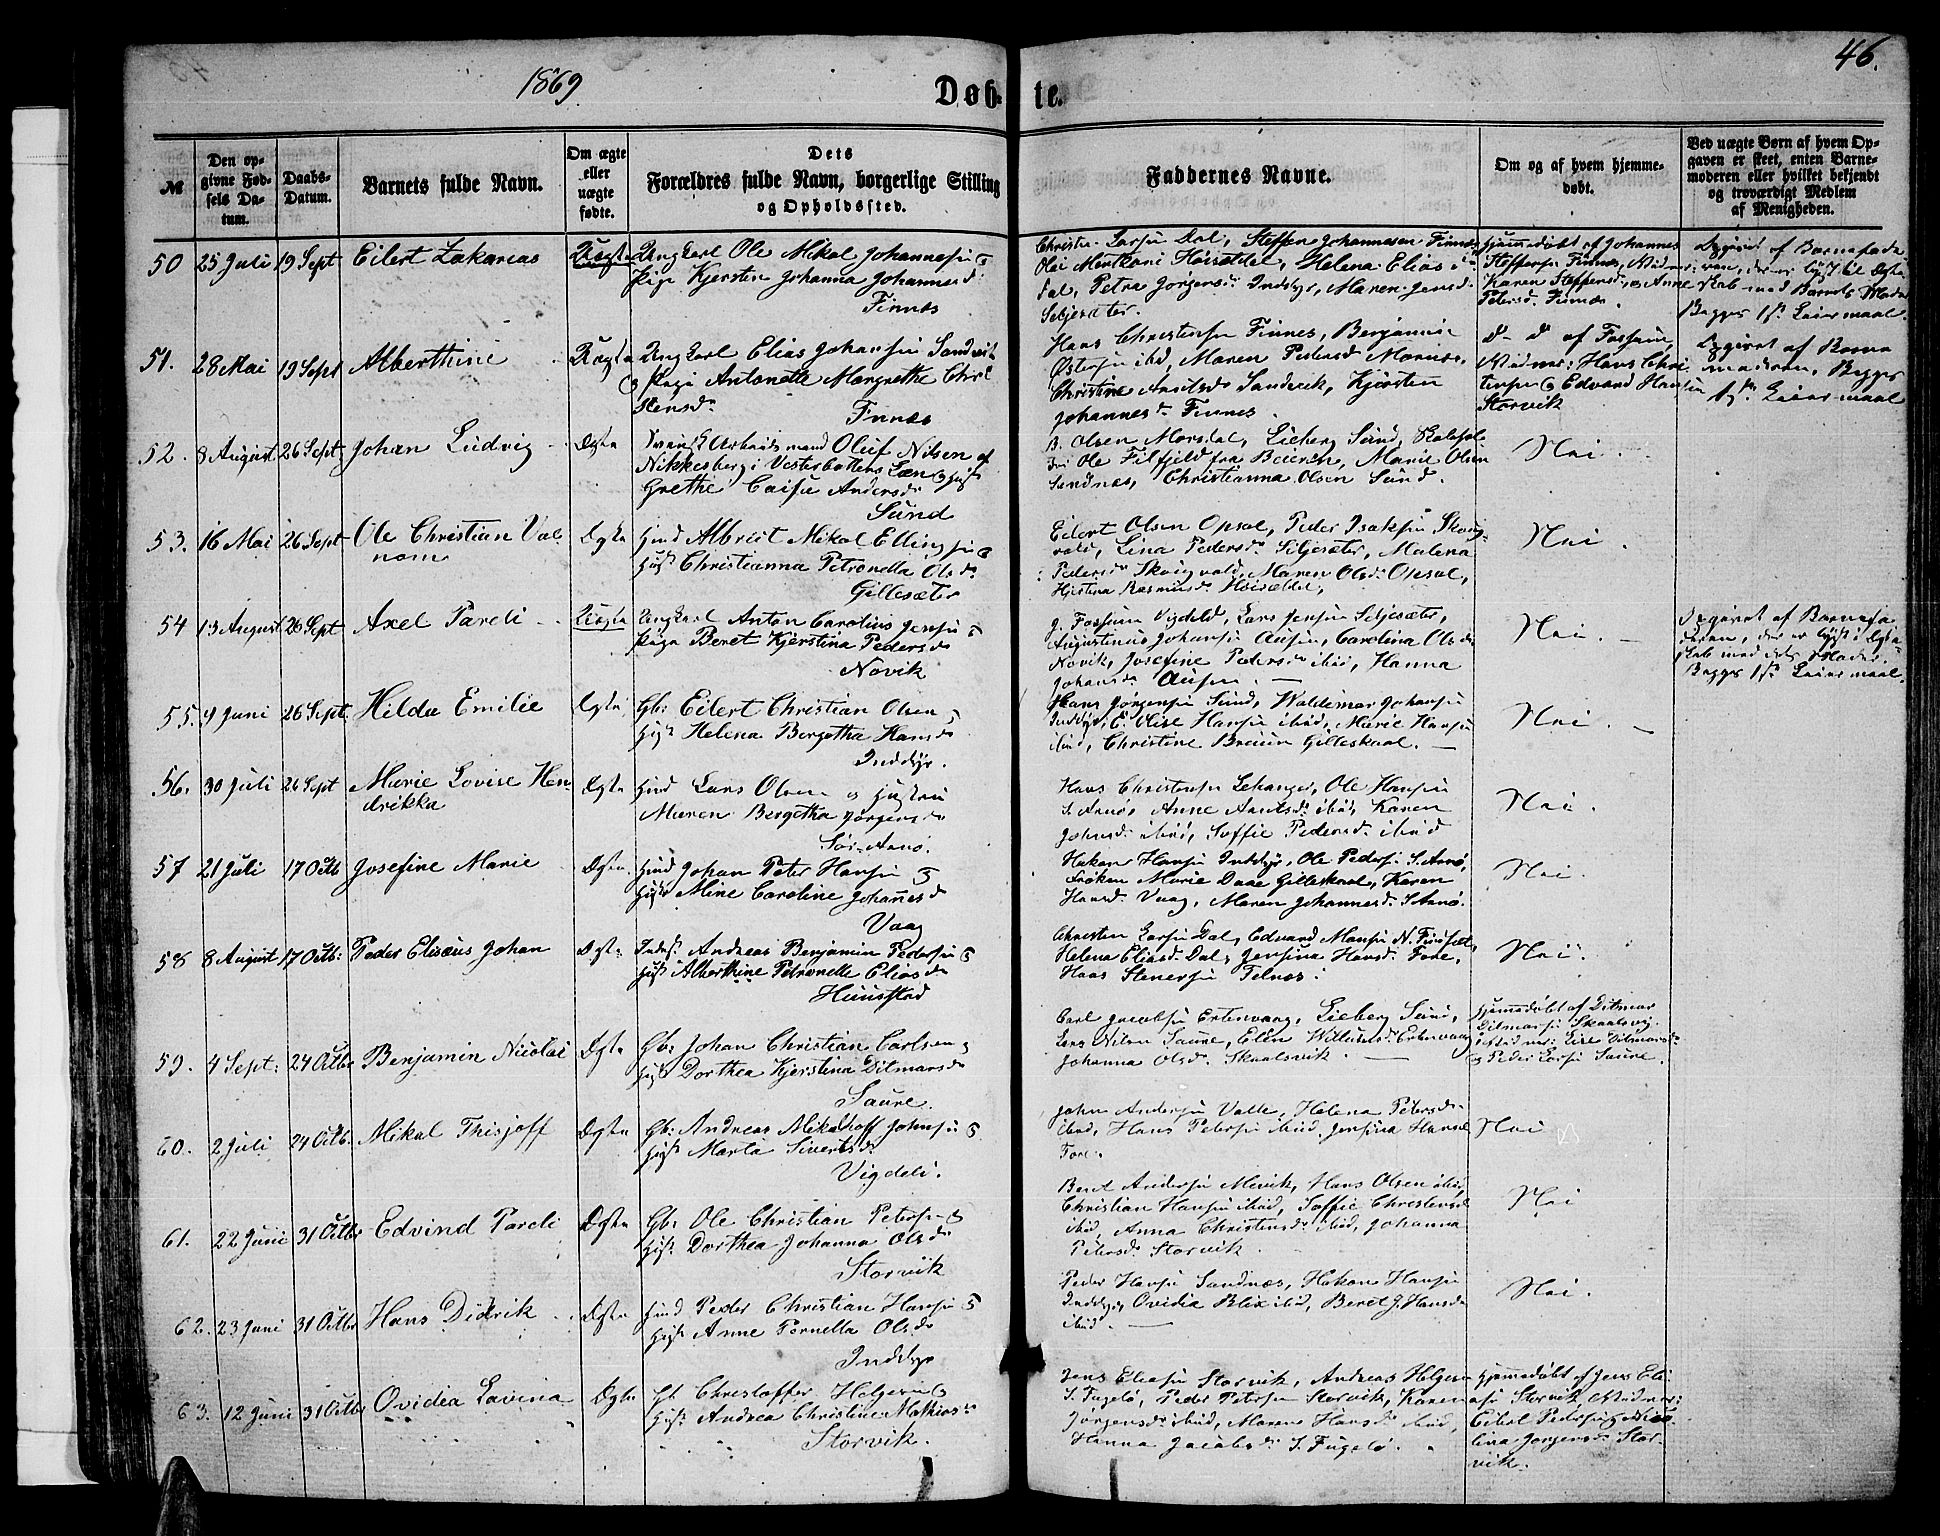 1869
46.
Døb- te.
№
Den opgivne Fødsels Datum.
Daabs-Datum.
Barnets fulde Navn.
Om ægte eller uægte fødte.
Dets Forældres fulde Navn, borgerlige Stilling og Opholdssted.
Faddernes Navne.
Om og af hvem hjemmedøbt.
Ved uægte Børn af hvem Opgaven er skeet, enten Barnemoderen eller hvilket bekjendt og troværdigt Medlem af Menigheden.
50 25 Juli 19 Sept Eilert Zakarias Uægte Ungkarl Ole Mikal Johannesen
Pige Kjersten Johanna Johannesd:
Finnes
Helena Elias
Dal, Petra Jørgensd: Inddyr, Maren Jensd:
Seljesæter.
Hjemmedøbt af Johannes
Steffensen Finnes,
Karen Steffensd: Anne
Petersd: Finnes.
Opgivet af Barnefade
Begges 1ste Leiermaal.
51. 28 Mai 19 Sept Alberthine Uægte Ungkarl Elias Johansen Sandvik
Pige Antonette Margrethe Chri
stensd:
Finnes
Hans Christensen Finnes, Benjamin
ibid, Maren Pedersd:
Christine Arntsd: Sandvik, Kjersten
Johannesd: Finnes.
Hans Chri
stensen Edvard Hansen
Storvik
Opgivet af Barne
moderen, Begges
1ste Leiermaal
52. 8 August 26 Sept Johan Ludvig Ægte Svensk Arbeidsmand Oluf Nilsen af
Vesterbottens Læn Hust:
Grethe Caisa Andersd:
Sund
B. Olsen Morsdal, Lieberg Sund,
Ole Filfjeld fra Beieren, Marie Olsen
Sandnæs, Christianna Olsen Sund.
Nei.
53. 16 Mai 26 Sept Ole Christian Val
nom Ægte Hmd Albrict Mikal Ellingsen
Hust Christianna Petronella Olsd:
Gillesæter
Eilert Olsen Opsal, Peder Isaksen Skoug
vold, Lina Pedersd: Seljesæter, Malena
Pedersd: Skougvold, Maren Olsd: Opsal,
Rasmusd:
Nei.
54 13 August 26 Sept Axel Pareli Uægte Ungkarl Anton Carolius Jensen
Pige Beret Kjerstina Pedersd:
Novik
J. Fossum Vigdeld, Lars Jensen Seljesæter,
Augustinus Johansen Ausen, Carolina Olsd:
Novik, Josefine Pedersd: ibid, Hanna
Johansd: Ausen.
Nei.
Opgivet af Barnefa
deren, der er lyst i Ægte
skab med dets Moder.
Begges 1ste Leiermaal.
55. 9 Juni 26 Sept. Hilda Emilie Ægte Gb: Eilert Christian Olsen
Hust Helena Bergetha Hansd:
Inddyr.
Hans Jørgensen Sund, Waldemar Johansen
Inddyr, E. Olise Hansen ibid, Marie Hansen
ibid, Christine Breuun Gilleskaal.
Nei.
56. 30 Juli 26 Sept Marie Lovise Hen
drikka Ægte Hmd Lars Olsen og Hustru
Maren Bergetha Jørgensd:
Sør-Arnø.
Hans Christensen Sehanger, Ole Hansen
S. Arnø, Anne Arntsd: ibid, Karen
Johansd: ibid, Soffie Pedersd: ibid
Nei.
57 21 Juli 17 Octb Josefine Marie Ægte Hmd Johan Peter Hansen
Hust Mine Caroline Johannesd:
Vaag
Hakon Hansen Inddyr, Ole Pedersen S. Arnø,
Frøken Marie Daae Gilleskaal, Karen
Hansd: Vaag, Maren Johannesd: S. Arnø.
Nei.
58 8 August 17 Octb: Peder Elisæus Johan Ægte Indst. Andreas Benjamin Pedersen
Hust Alberthine Petronelle Eliasd:
Huusstad
Christen Larsen Dal, Edvard Monsen N.
Helena Eliasd: Dal, Jensina Hansd: Fore,
Hans Stenersen Felnes.
Nei.
59. 4 Sept: 24 Octbr Benjamin Nicolai Ægte Gb: Johan Christian Carlsen
Hust Dorthea Kjerstina Ditmarsd:
Saure.
Carl Jacobsen Ertenvaag, Lieberg Sund,
Lars Nilsen Saure, Elen Ertenvaag
Johanna Olsd: Skaalsvik.
Hjemmedøbt af Ditmar
Ditmarsen Skaalsvig.
Peder Larsen Saure.
60. 2 Juli 24 Octb. Mikal Thisjoff Ægte Gb: Andreas Mikalhoff Johnsen
Hust Marta Sivertsd:
Vigdeli.
John Andersen Valle, Helena Petersd:
ibid, Hans Petersen ibid, Jensina
Fore.
Nei
61. 22 Juni 31 Octbr Edvind Pareli Ægte Gb: Ole Christian Petersen
Hust Dorthea Johanna Olsd:
Storvik
Beret Andersen Mevik, Hans Olsen ibid,
Christian Hansen ibid, Soffie Christensd:
ibid, Anna Christensd: ibid, Johanna
Petersd: Storvik.
Nei
62. 23 Juni 31 Octbr Hans Didrik Ægte Hmd Peder Christian Hansen
Hust Anne Pernella Olsd:
Inddyr
Peder Hansen Sandnæs, Hakon Hansen
Inddyr, Ovidia Blix ibid, Beret J. Hansd:
ibid.
Nei.
63. 12 Juni 31 Octbr Ovidia Lavina Ægte Gb Christoffer Helgesen
Hust Andrea Christine Mathiasd:
Storvik.
Jens Eliasen Storvik, Andreas Helgesen
S. Fugelø, Peder Petersen Storvik, Karen
Jørgensd: ibid, Maren Hansd: ibid,
Hanna Jacobsd: S. Fugelø.
Hjemmedøbt af Jens Eli
asen Storvik,
lina Jørgensd: Stor
vik.